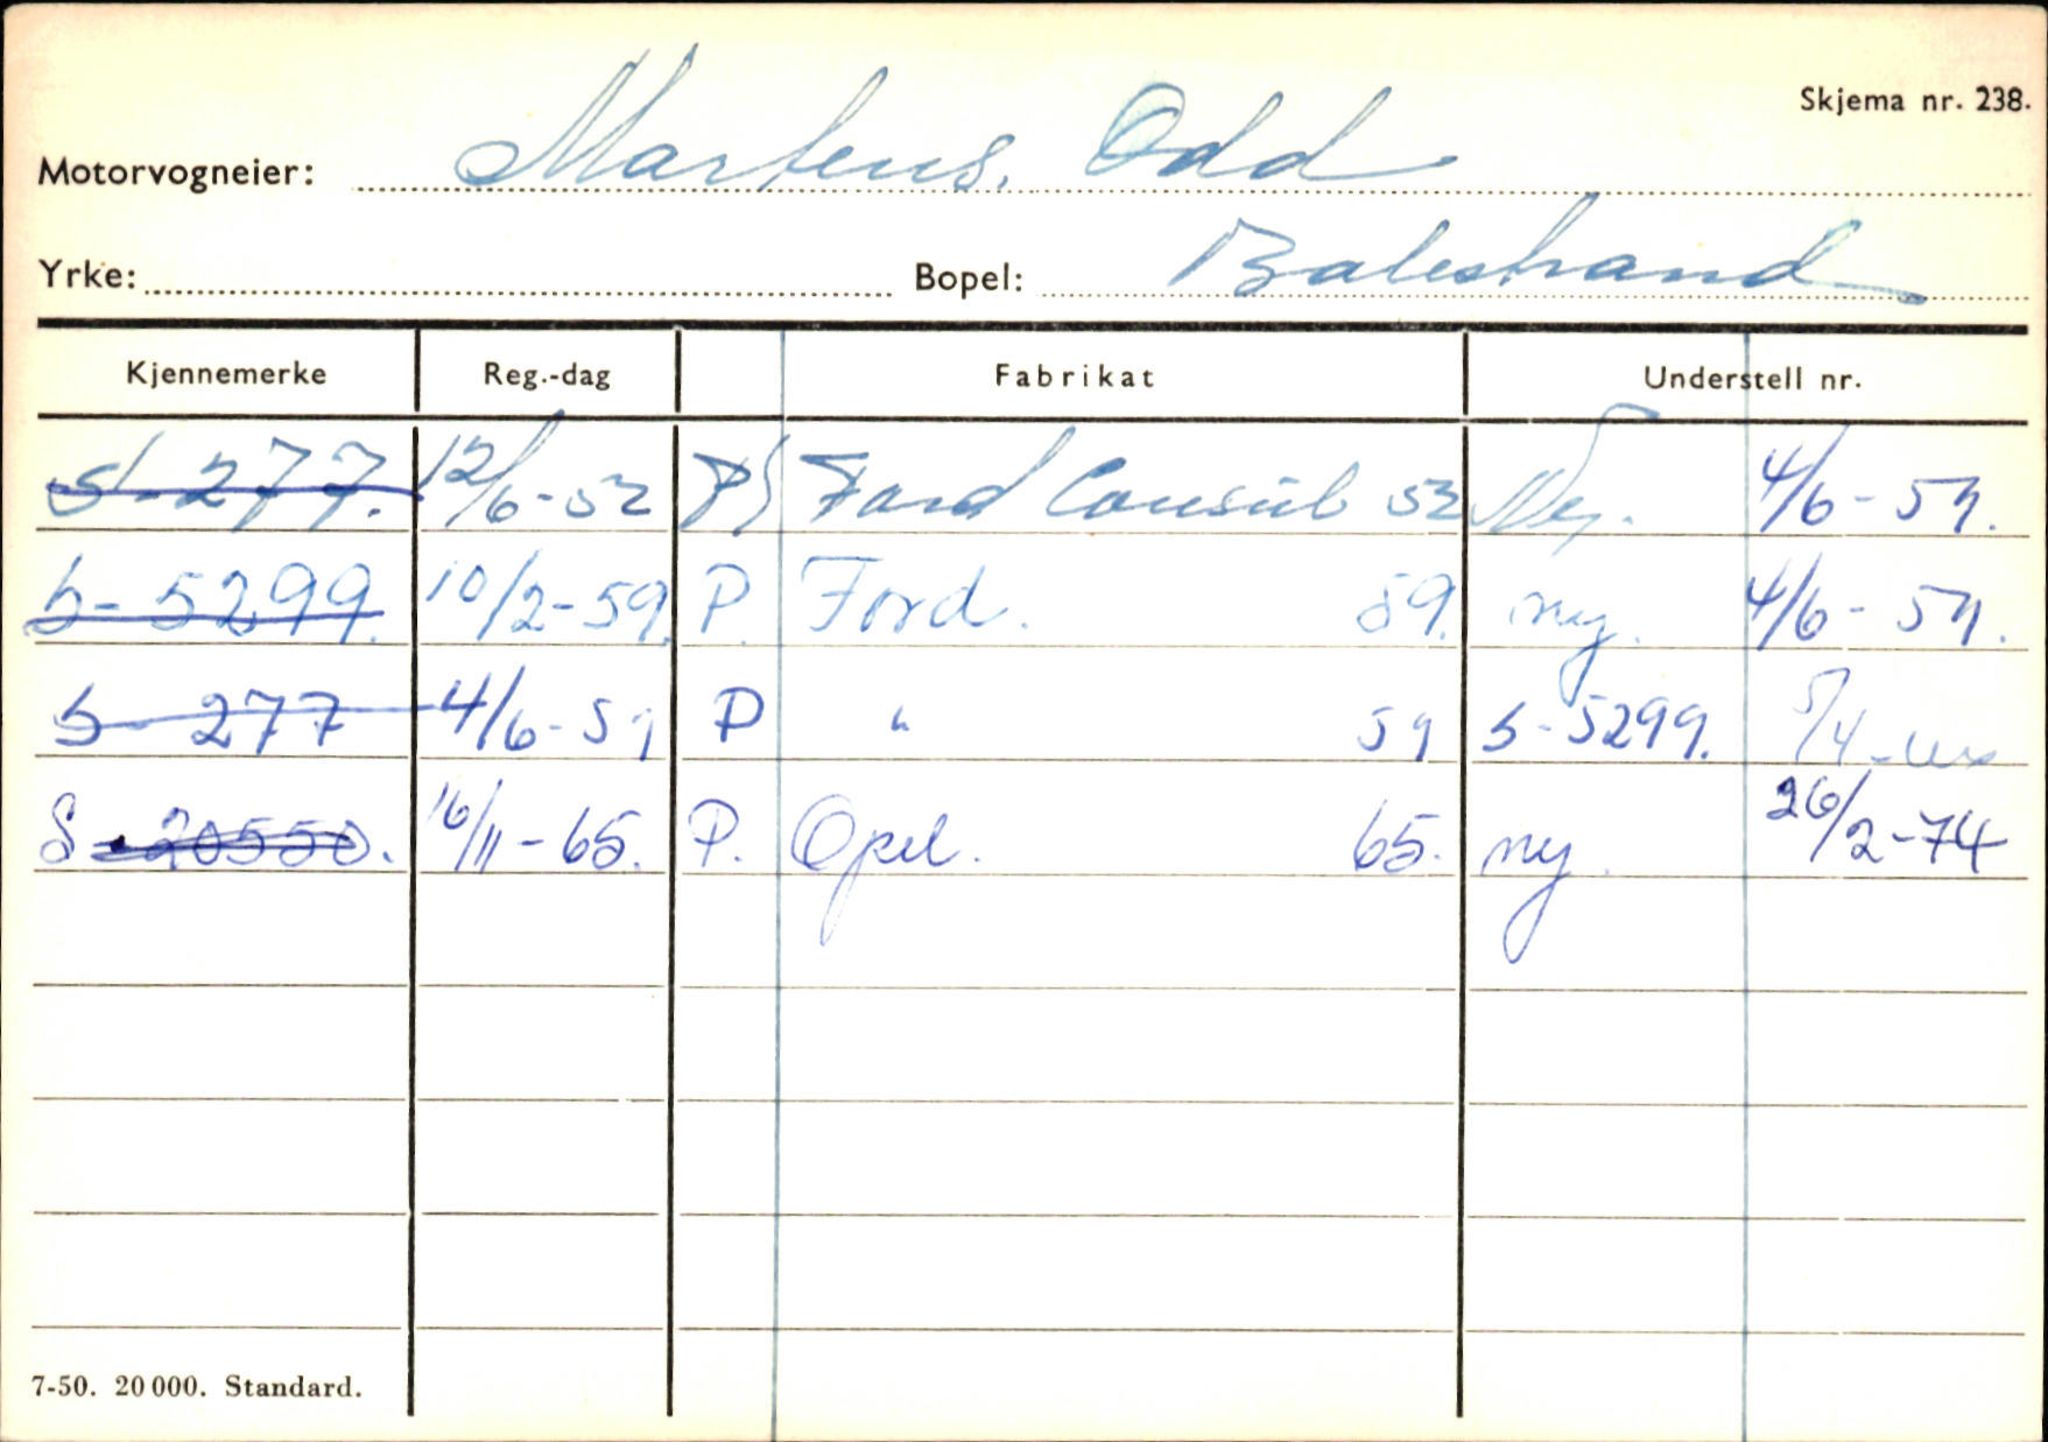 Skjema nr. 238.
Motorvogneier: Martens, Odd
Yrke: Bopel: Balestrand
Kjennemerke Reg.-dag Fabrikat Understell nr.
S-277. 12/6-52 P Ford Consul 52 Ny. 4/6-59.
S-5299. 10/2-59. P. Ford. 59. ny. 4/6-59.
S-277 4/6-59 P " 59 S-5299. 5/4-
S-20550. 16/11-65. P. Opel. 65. ny. 26/2-74
7-50. 20 000. Standard.